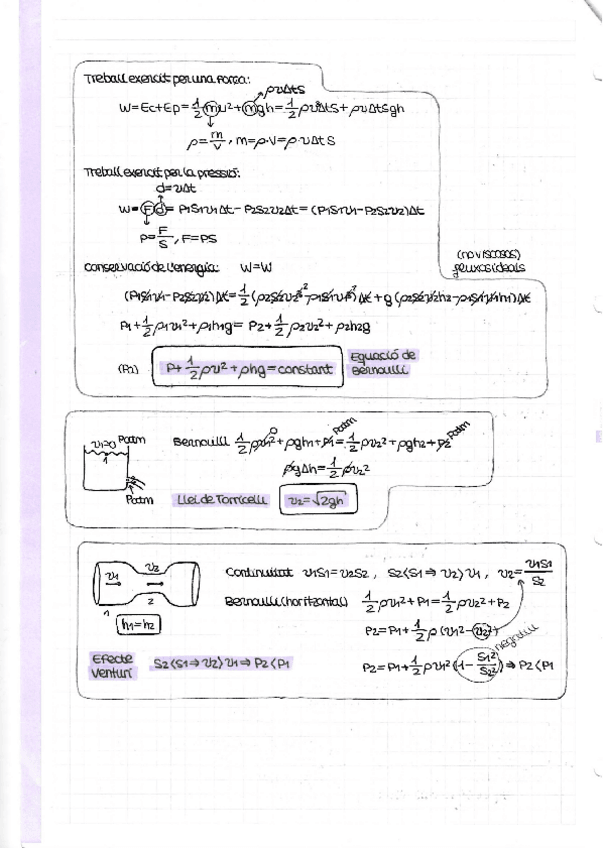 Treball exercit per una força:
ρvΔtS
W=Ec+Ep=1/2mv²+mgh=1/2ρv²ΔtS+ρvΔtSgh
ρ=m/V, m=ρ·V=ρ·vΔtS
Treball exercit per la pressió:
d=vΔt
W=Fd=P1S1v1Δt-P2S2v2Δt=(P1S1v1-P2S2v2)Δt
P=F/S, F=PS
Conservació de l'energia: W=W
(no viscosos)
fluxos ideals
(P1S1v1-P2S2v2)Δt=1/2(ρ2S2v2³-ρ1S1v1³)Δt+g(ρ2S2v2h2-ρ1S1v1h1)Δt
P1+1/2ρ1v1²+ρ1h1g=P2+1/2ρ2v2²+ρ2h2g
(Pa) P+1/2ρv²+ρhg=constant Equació de
Bernoulli
v1≈0 Patm
1
Patm
Bernoulli 1/2ρv1²+ρgh1+P1=1/2ρv2²+ρgh2+P2
0 Patm Patm
ρgΔh=1/2ρv2²
Llei de Torricelli v2=√2gh
v1 v2
1 2
h1=h2
Continuïtat v1S1=v2S2, S2<S1⇒v2>v1, v2=v1S1/S2
Bernoulli (horitzontal) 1/2ρv1²+P1=1/2ρv2²+P2
P2=P1+1/2ρ(v1²-v2²)
negatiu
P2=P1+1/2ρv1²(1-S1²/S2²)⇒P2<P1
Efecte
Venturi S2<S1⇒v2>v1⇒P2<P1